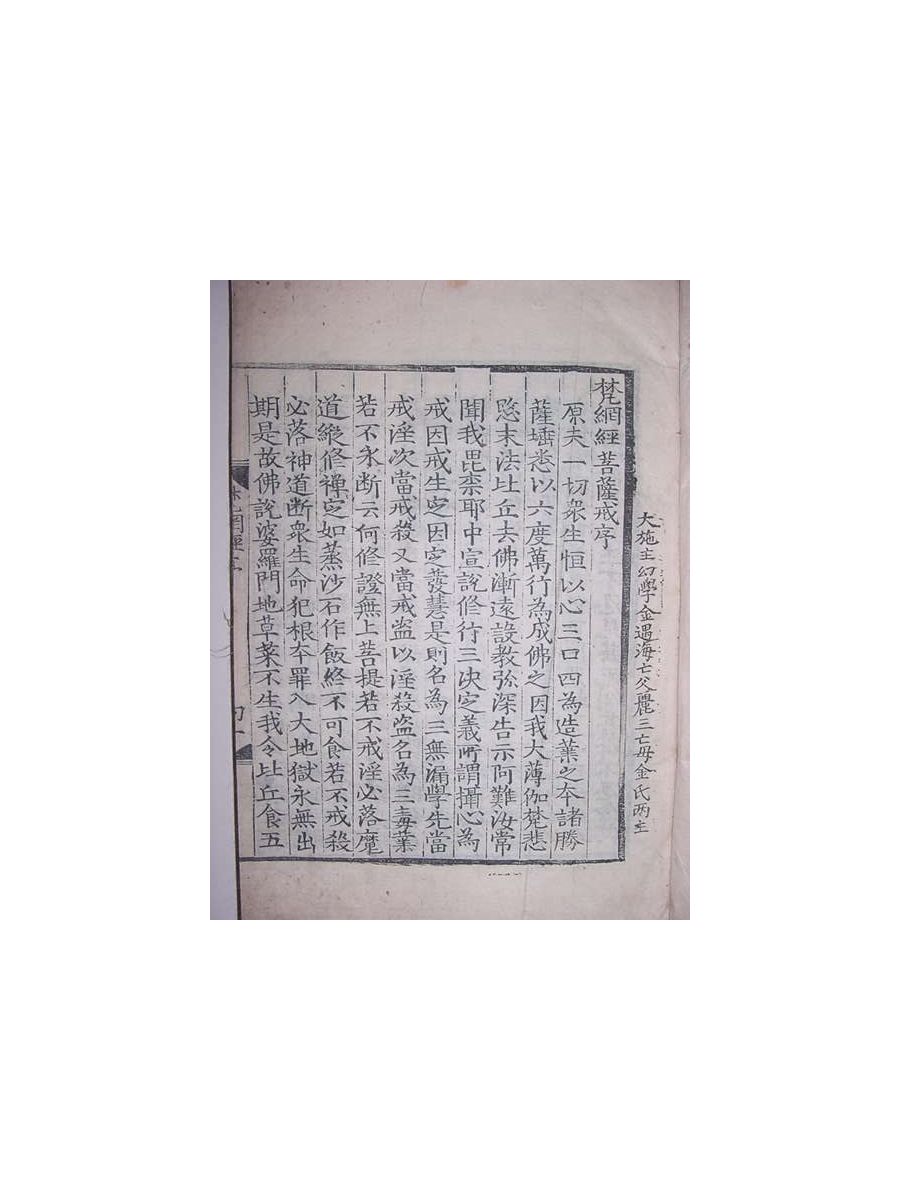 大施主幻學金遇海亡父麗三亡母金氏両主
梵網經菩薩戒序
原夫一切衆生恒以心三口四為造業之夲諸勝
薩埵悉以六度萬行為成佛之因我大薄伽梵悲
愍末法比丘去佛漸遠設教弥深告示阿難汝常
聞我毘柰耶中宣說修行三决定義所謂攝心為
戒因戒生㝎因㝎發慧是則名為三無漏學先當
戒淫次當戒殺又當戒盗以淫殺盗名為三毒業
若不永断云何修證無上菩提若不戒淫必落魔
道縱修禪㝎如蒸沙石作飯終不可食若不戒殺
必落神道断衆生命犯根夲罪入大地獄永無出
期是故佛說婆羅門地草菜不生我令比丘食五